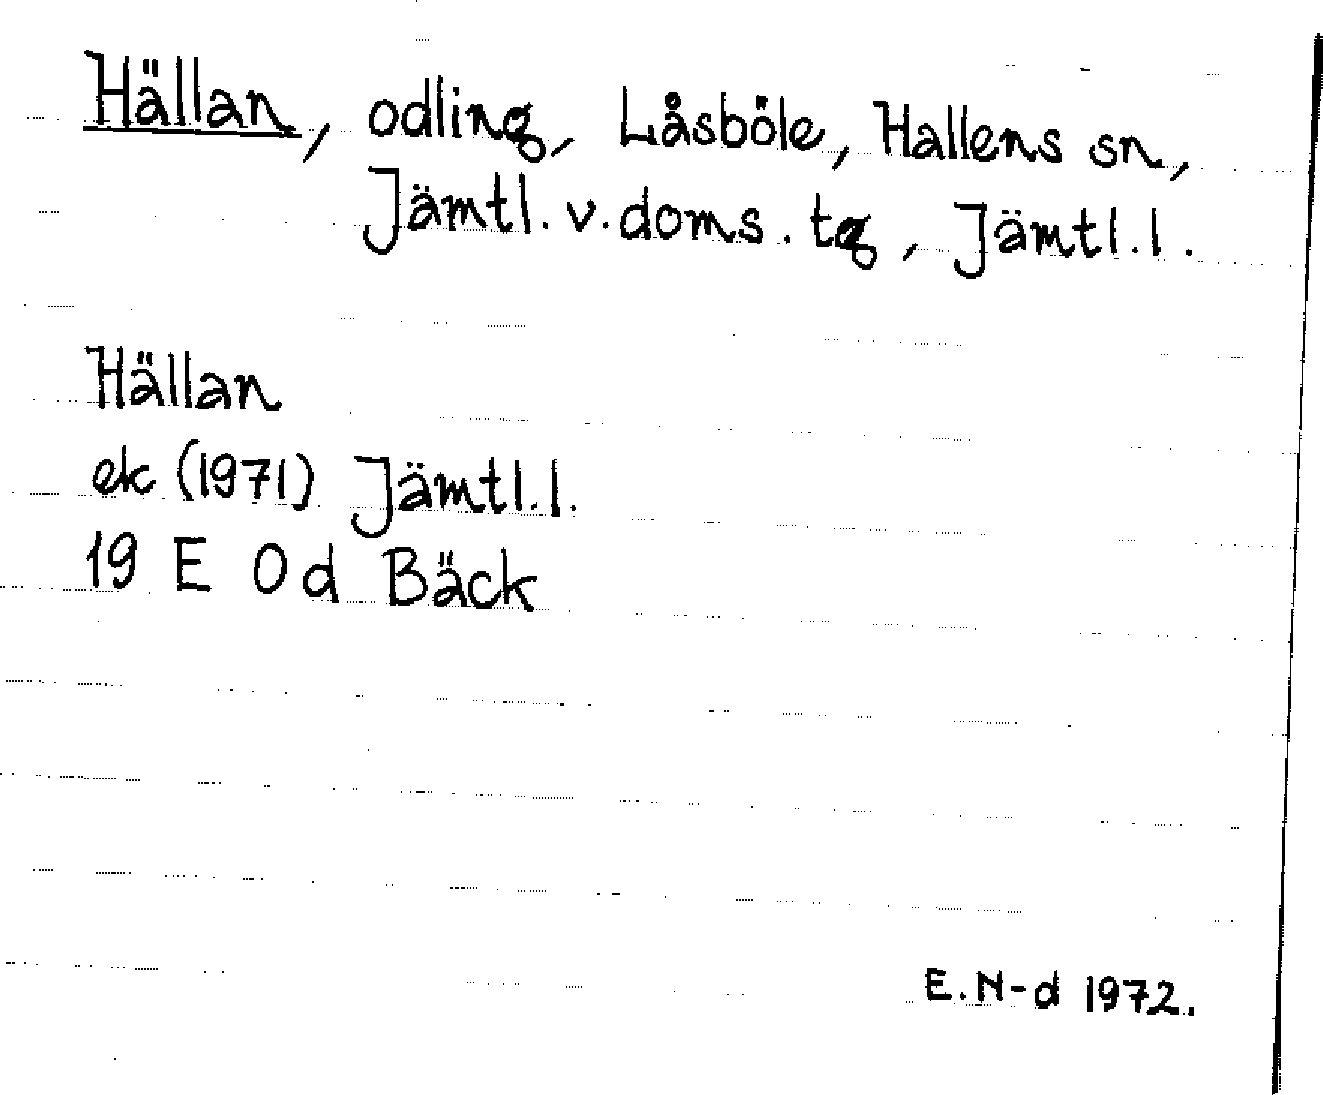 Hällan, odling, Låsböle, Hallens sn,
Jämtl. v. doms. tg, Jämtl. l.
Hällan
ek (1971) Jämtl. l.
19 E 0 d Bäck
E. N-d 1972.